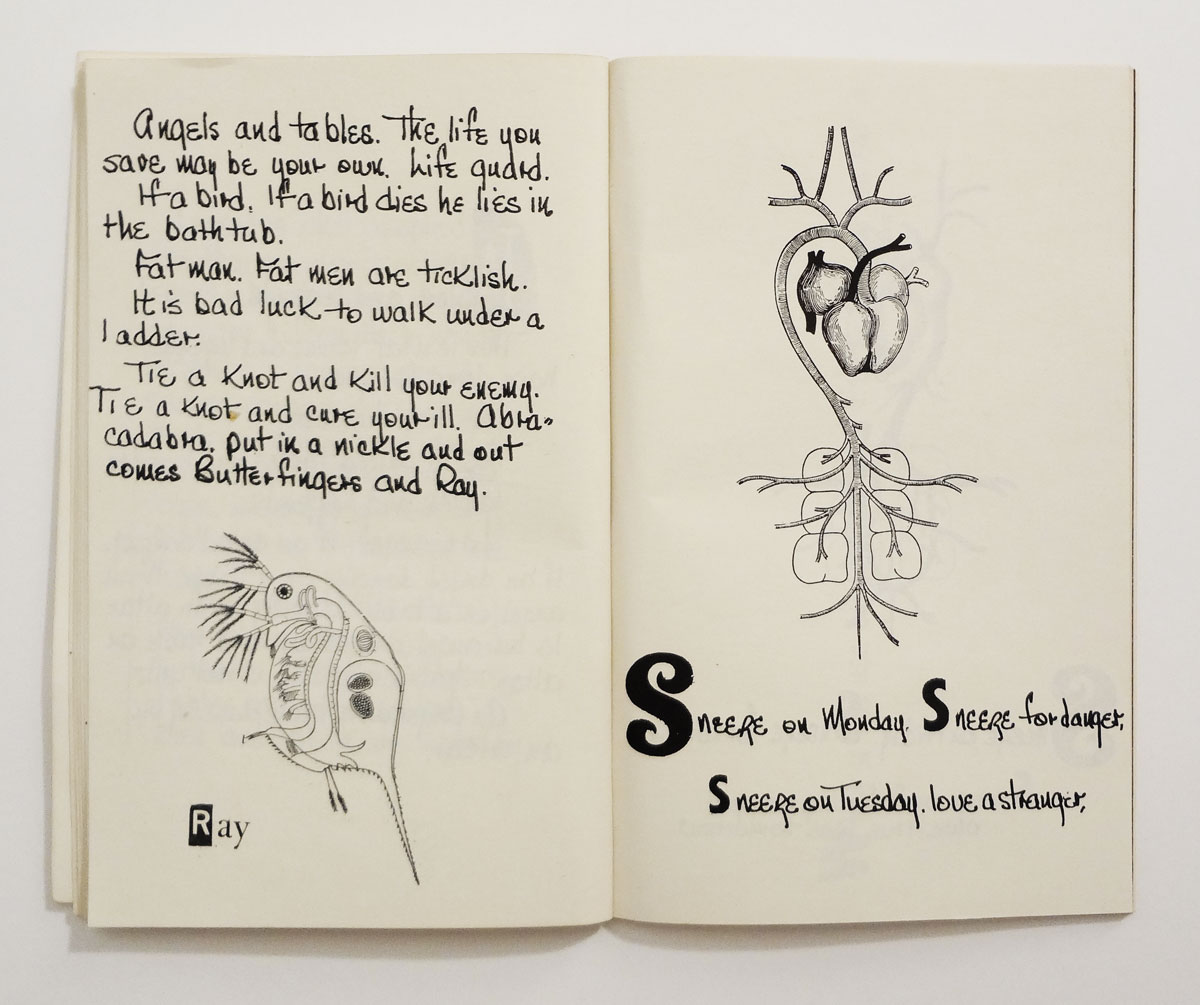 Angels and tables. The life you
save may be your own. Life guard.
If a bird. If a bird dies he lies in
the bathtub.
Fat man. Fat men are ticklish.
It is bad luck to walk under a
ladder.
Tie a Knot and Kill your enemy.
Tie a Knot and cure your ill. Abra-
cadabra. put in a nickle and out
comes Butterfingers and Ray.
Ray
Sneeze on Monday. Sneeze for danger,
Sneeze on Tuesday. love a stranger,